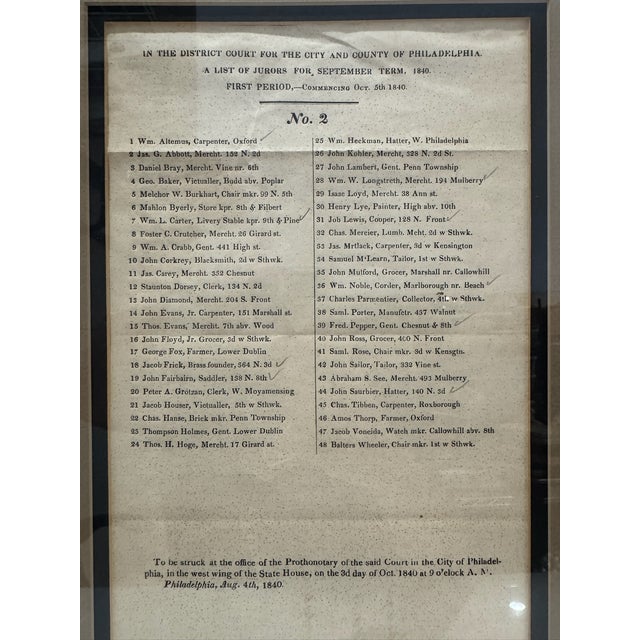 IN THE DISTRICT COURT FOR THE CITY AND COUNTY OF PHILADELPHIA.
A LIST OF JURORS FOR SEPTEMBER TERM, 1840.
FIRST PERIOD,—COMMENCING OCT. 5th 1840.
No. 2
1 Wm. Altemus, Carpenter, Oxford
2 Jas. G. Abbott, Mercht. 152 N. 2d
3 Daniel Bray, Mercht. Vine nr. 6th
4 Geo. Baker, Victualler, Budd abv. Poplar
5 Melchor W. Burkhart, Chair mkr. 99 N. 5th
6 Mahlon Byerly, Store kpr. 8th & Filbert
7 Wm. L. Carter, Livery Stable kpr. 9th & Pine
8 Foster C. Crutcher, Mercht. 26 Girard st.
9 Wm. A. Crabb, Gent. 441 High st.
10 John Corkrey, Blacksmith, 2d w Sthwk.
11 Jas. Carey, Mercht. 352 Chesnut
12 Staunton Dorsey, Clerk, 134 N. 2d
13 John Diamond, Mercht. 204 S. Front
14 John Evans, Jr. Carpenter, 151 Marshall st.
15 Thos. Evans, Mercht. 7th abv. Wood
16 John Floyd, Jr. Grocer, 3d w Sthwk.
17 George Fox, Farmer, Lower Dublin
18 Jacob Frick, Brass founder, 564 N. 3d
19 John Fairbairn, Saddler, 158 N. 8th
20 Peter A. Grotzan, Clerk, W. Moyamensing
21 Jacob Houser, Victualler, 5th w Sthwk.
22 Chas. Hanse, Brick mkr. Penn Township
23 Thompson Holmes, Gent. Lower Dublin
24 Thos. H. Hoge, Mercht. 17 Girard st.
25 Wm. Heckman, Hatter, W. Philadelphia
26 John Kohler, Mercht. 328 N. 2d St.
27 John Lambert, Gent. Penn Township
28 Wm. W. Longstreth, Mercht. 191 Mulberry
29 Isaac Loyd, Mercht. 38 Ann st.
30 Henry Lye, Painter, High abv. 10th
31 Job Lewis, Cooper, 128 N. Front
32 Chas. Mercier, Lumb. Mcht. 2d w Sthwk.
33 Jas. Mrtlack, Carpenter, 3d w Kensington
34 Samuel M'Learn, Tailor, 1st w Sthwk.
35 John Mulford, Grocer, Marshall nr. Callowhill
36 Wm. Noble, Corder, Marlborough nr. Beach
37 Charles Parmentier, Collector, 4th w Sthwk.
38 Saml. Porter, Manufctr. 457 Walnut
39 Fred. Pepper, Gent. Chesnut & 8th
40 John Ross, Grocer, 400 N. Front
41 Saml. Rose, Chair mkr. 3d w Kensgtn.
42 John Sailor, Tailor, 332 Vine st.
43 Abraham S. See, Mercht. 493 Mulberry
44 John Saurbier, Hatter, 140 N. 3d
45 Chas. Tibben, Carpenter, Roxborough
46 Amos Thorp, Farmer, Oxford
47 Jacob Voneida, Watch mkr. Callowhill abv. 8th
48 Balters Wheeler, Chair mkr. 1st w Sthwk.
To be struck at the office of the Prothonotary of the said Court in the City of Philadel-
phia, in the west wing of the State House, on the 3d day of Oct. 1840 at 9 o'clock A. M.
Philadelphia, Aug. 4th, 1840.